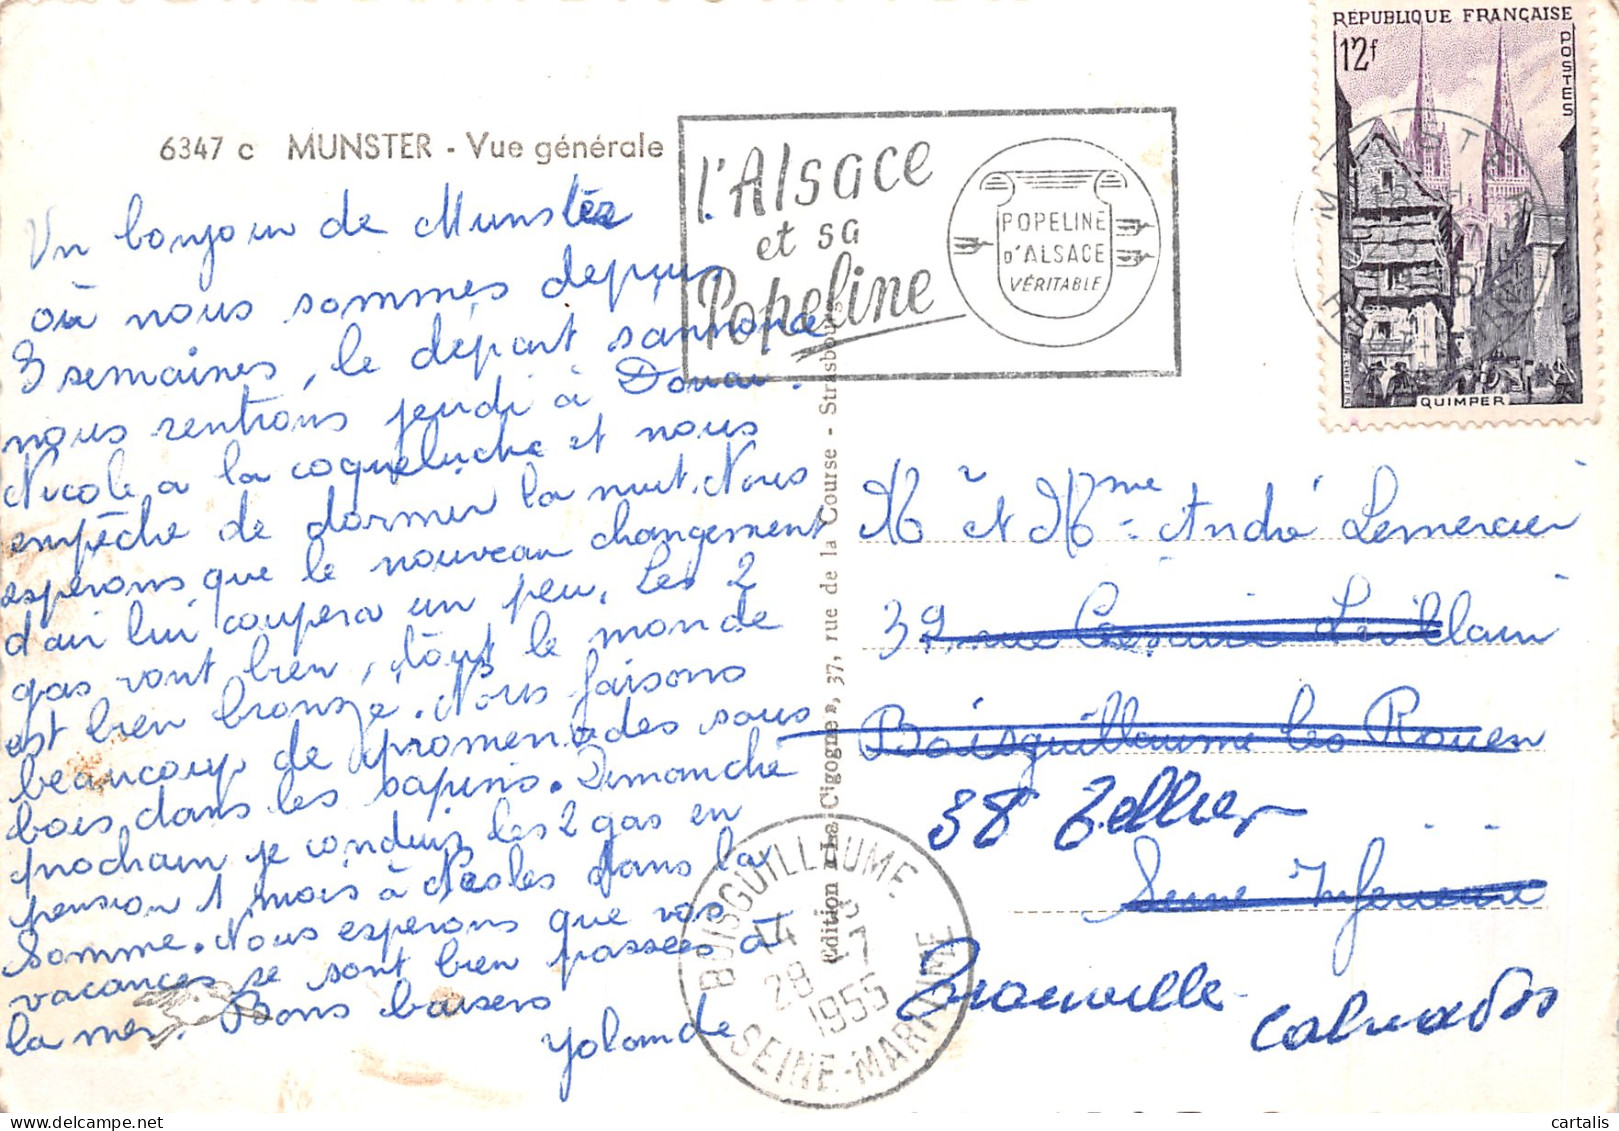 RÉPUBLIQUE FRANÇAISE
12f
POSTES
QUIMPER
6347 c MUNSTER - Vue générale
l'Alsace
et sa
Popeline
POPELINE
D'ALSACE
VÉRITABLE
Un bonjour de Munster
où nous sommes depuis
3 semaines, le départ s'annonce
nous rentrons jeudi à Douai.
Nicole a la coqueluche et nous
empêche de dormir la nuit. Nous
esperons que le nouveau changement
d'air lui coupera un peu. Les 2
gas vont bien, tout le monde
est bien bronzé. Nous faisons
beaucoup de promenades sous
bois dans les sapins. Dimanche
prochain je conduis les 2 gas en
pension 1 mois à Nesles dans la
Somme. Nous esperons que vos
vacances se sont bien passées à
la mer. Bons baisers
Yolande
Edition «La Cigogne», 37, rue de la Course - Strasbourg
Mr et Mme André Lemercier
39, rue Cesaire Levillain
Boisguillaume les Rouen
38 Tellier
Seine Inferieure
Calvados
BOISGUILLAUME
28 -7
1955
SEINE-MARITIME
cartalis
delcampe.net